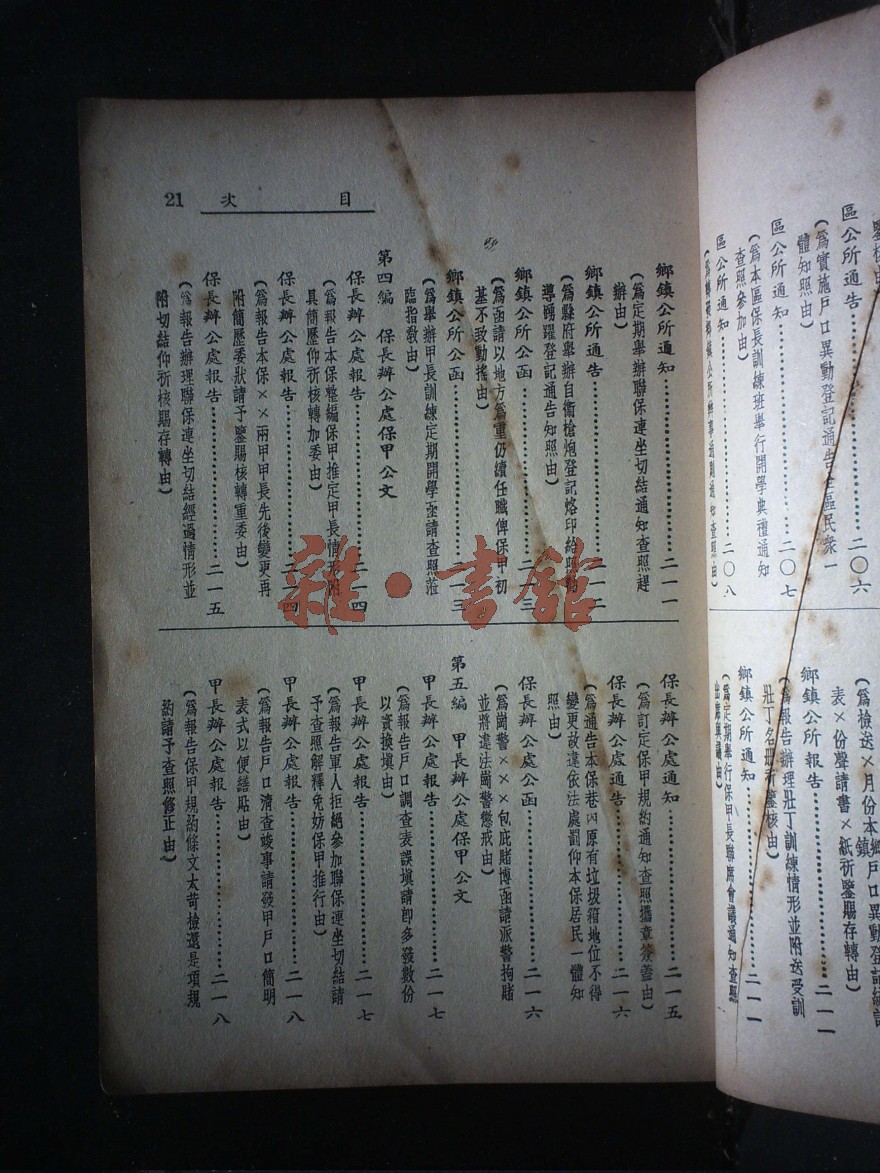 區公所通告……………二〇六
(爲實施戶口異動登記通告全區民衆一
體知照由)
區公所通知……………二〇七
(爲本區保長訓練班舉行開學典禮通知
查照參加由)
區公所通知……………二〇八
表×份聲請書×紙祈鑒賜存轉由)
鄉鎮公所報告……………二一一
(爲報告辦理壯丁訓練情形並附送受訓
壯丁名册祈鑒核由)
鄉鎮公所通知……………二一一
(爲定期舉行保甲長聯席會議通知查照
出席與議由)
21 次 目
鄉鎮公所通知……………二一一
(爲定期舉辦聯保連坐切結通知查照趕
辦由)
鄉鎮公所通告……………二一二
(爲縣府舉辦自衞槍炮登記烙印給照勸
導踴躍登記通告知照由)
鄉鎮公所公函……………二一三
(爲函請以地方爲重仍續任職俾保甲初
基不致動搖由)
鄉鎮公所公函……………二一三
(爲舉辦甲長訓練定期開學函請查照蒞
臨指敎由)
第四編 保長辦公處保甲公文
保長辦公處報告……………二一四
(爲報告本保整編保甲推定甲長情形附
具簡歷仰祈核轉加委由)
保長辦公處報告……………二一四
(爲報告本保××兩甲甲長先後變更再
附簡歷委狀請予鑒賜核轉重委由)
保長辦公處報告……………二一五
(爲報告辦理聯保連坐切結經過情形並
附切結仰祈核賜存轉由)
保長辦公處通知……………二一五
(爲訂定保甲規約通知查照攜章簽蓋由)
保長辦公處通告……………二一六
(爲通告本保巷內原有垃圾箱地位不得
變更故違依法處罰仰本保居民一體知
照由)
保長辦公處公函……………二一六
(爲崗警×××包庇賭博函請派警拘賭
並將違法崗警懲戒由)
第五編 甲長辦公處保甲公文
甲長辦公處報告……………二一七
(爲報告戶口調查表誤塡請卽多發數份
以資換塡由)
甲長辦公處報告……………二一七
(爲報告軍人拒絕參加聯保連坐切結請
予查照解釋免妨保甲推行由)
甲長辦公處報告……………二一八
(爲報告戶口清查竣事請發甲戶口簡明
表式以便繕貼由)
甲長辦公處報告……………二一八
(爲報告保甲規約條文太苛檢還是項規
約請予查照修正由)
雜·書館